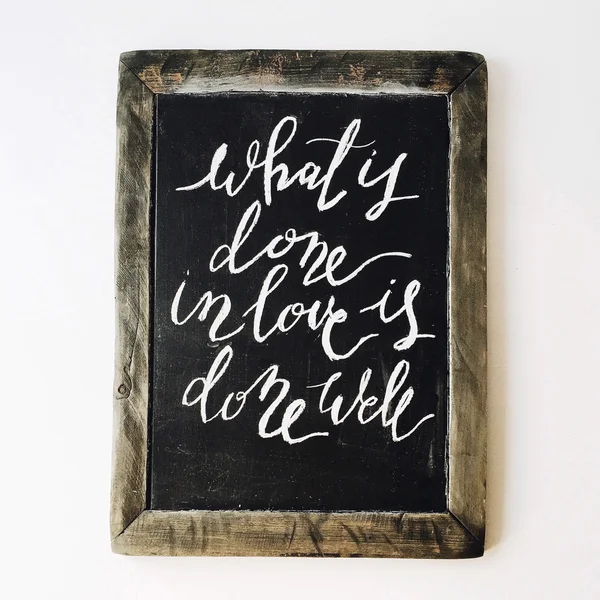 what is
done
in love is
done well